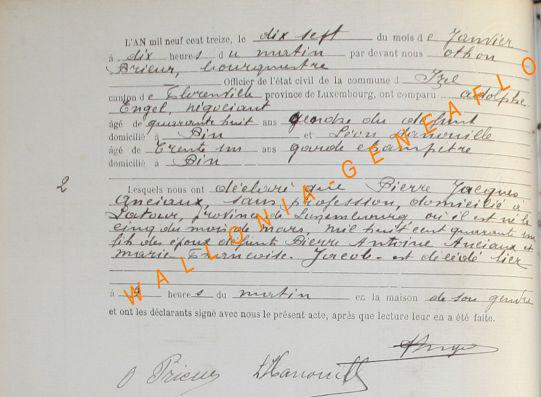 L'AN mil neuf cent treize, le dix sept du mois de Janvier
à dix heures du matin par devant nous Othon
Prieur, bourgmestre
Officier de l'état civil de la commune d'Izel
canton de Florenville province de Luxembourg, ont comparu Adolphe
Engel, négociant
âgé de quarante huit ans gendre du défunt
domicilié à Pin et Léon Hanouille
âgé de Trente un ans garde champêtre
domicilié à Pin
2 Lesquels nous ont déclaré que Pierre Jacques
Anciaux, sans profession, domicilié à
Latour, province de Luxembourg, où il est né le
cinq du mois de mars, mil huit cent quarante un
fils des époux défunts Pierre Antoine Anciaux et
Marie Françoise Jacob est décédé hier
à heures du matin en la maison de son gendre
et ont les déclarants signé avec nous le présent acte, après que lecture leur en a été faite.
O Prieur LHanouille
WALLONIA-GENEAFLO